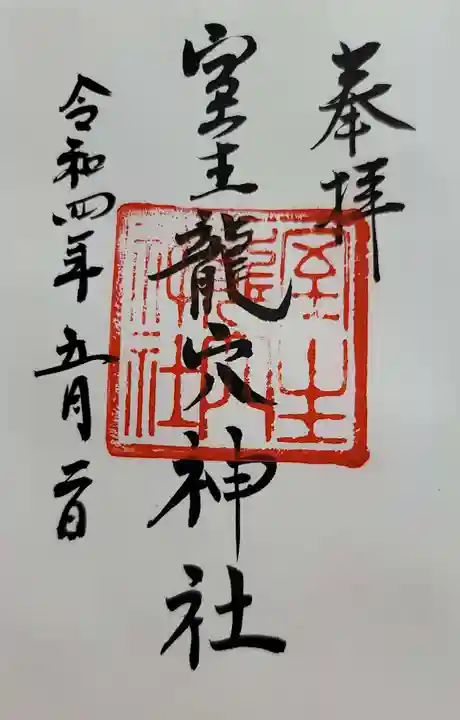 奉拝
室生龍穴神社
室生
龍穴
神社
令和四年五月二日